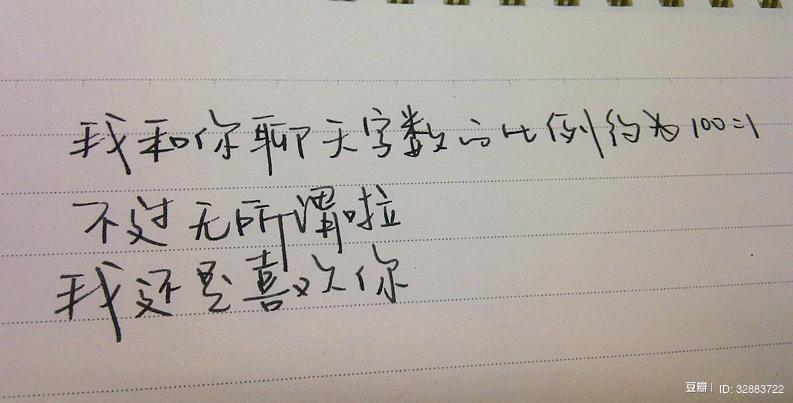 我和你聊天字数的比例约为100:1
不过无所谓啦
我还是喜欢你
豆瓣 ID: 32883722